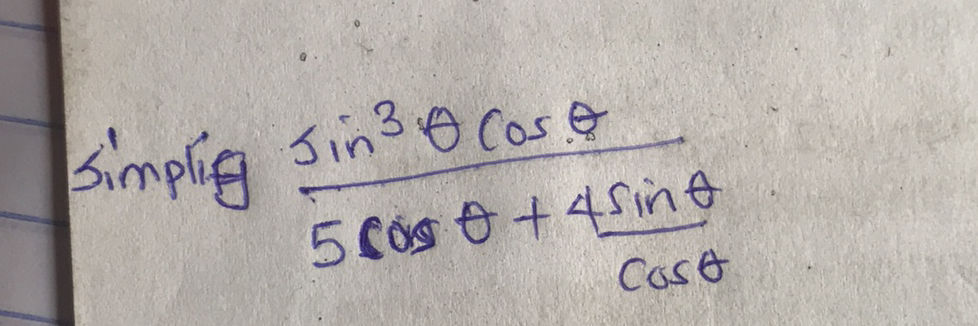 Simplify sin³θ cosθ
5 cos θ + 4 sin θ
cosθ